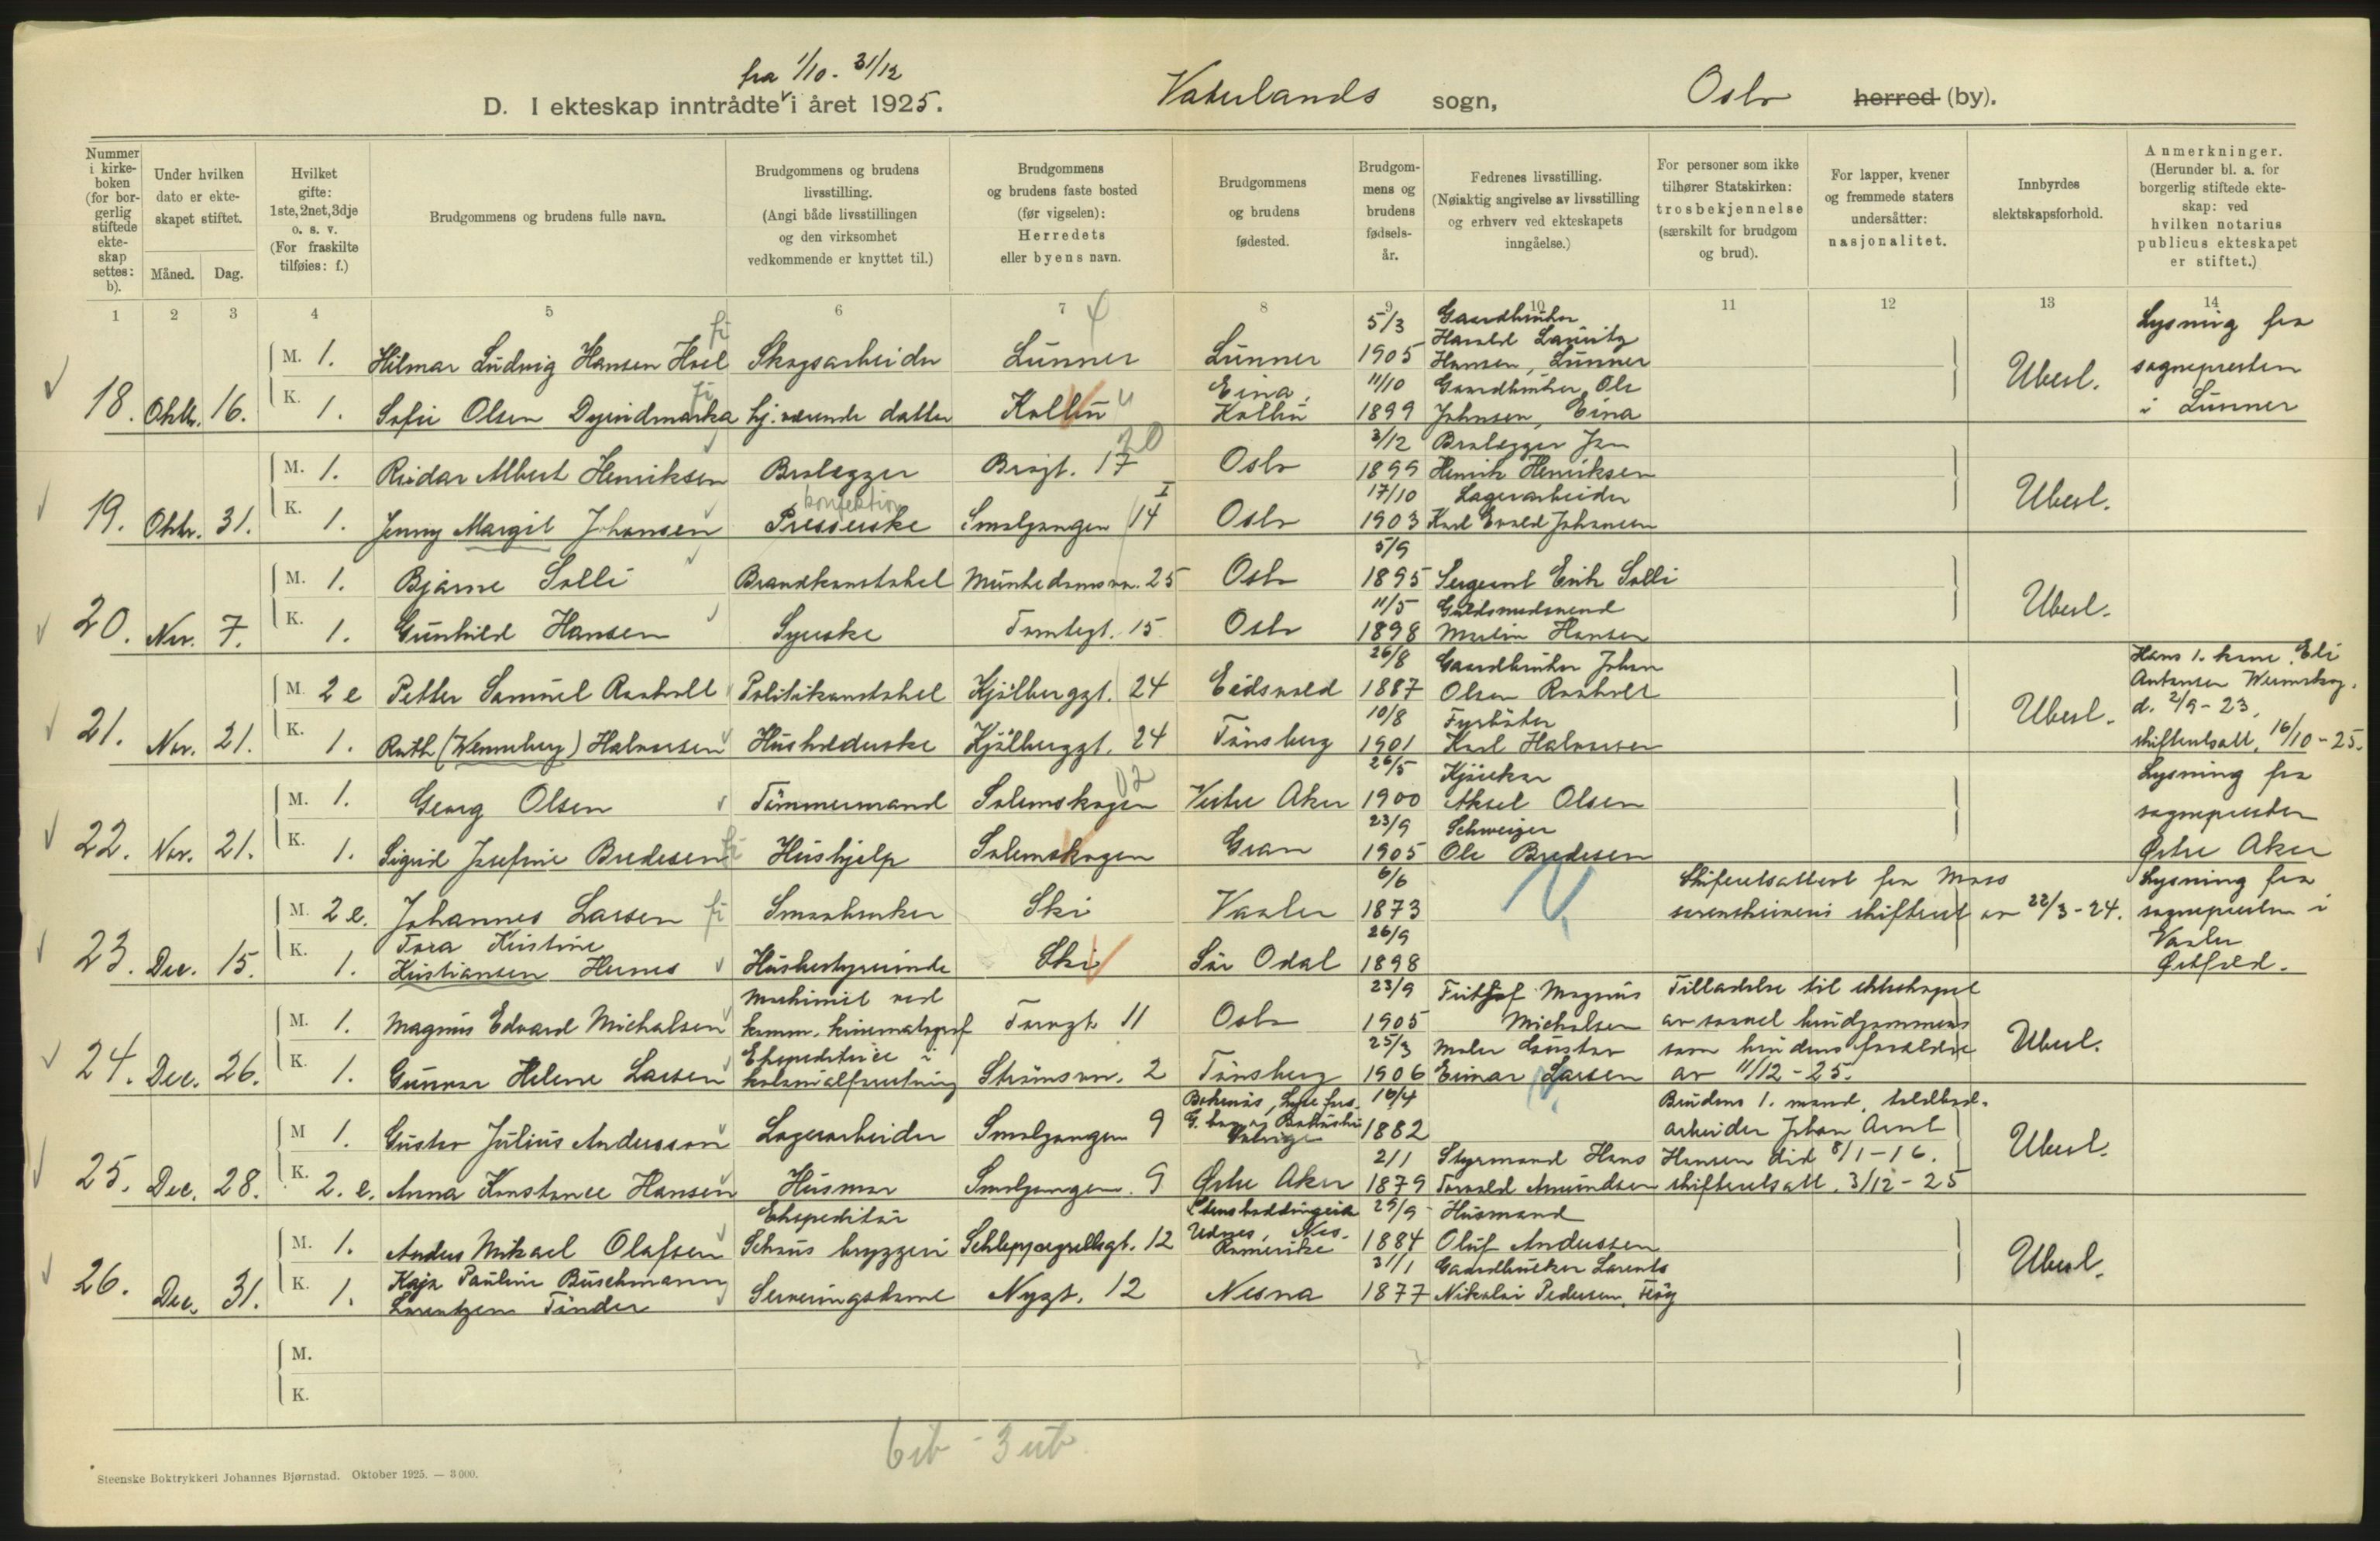 fra 1/10 - 31/12
D. I ekteskap inntrådte i året 1925. Vaterlands sogn, Oslo herred (by).
Nummer i kirkeboken (for borgerlig stiftede ekteskap settes: b).
Under hvilken dato er ekteskapet stiftet.
Måned. Dag.
Hvilket gifte: 1ste, 2net, 3dje o. s. v. (For fraskilte tilføies: f.)
Brudgommens og brudens fulle navn.
Brudgommens og brudens livsstilling. (Angi både livsstillingen og den virksomhet vedkommende er knyttet til.)
Brudgommens og brudens faste bosted (før vigselen): Herredets eller byens navn.
Brudgommens og brudens fødested.
Brudgommens og brudens fødselsår.
Fedrenes livsstilling. (Nøiaktig angivelse av livsstilling og erhverv ved ekteskapets inngåelse.)
For personer som ikke tilhører Statskirken: trosbekjennelse (særskilt for brudgom og brud).
For lapper, kvener og fremmede staters undersåtter: nasjonalitet.
Innbyrdes slektskapsforhold.
Anmerkninger. (Herunder bl. a. for borgerlig stiftede ekteskap: ved hvilken notarius publicus ekteskapet er stiftet.)
1 2 3 4 5 6 7 8 9 10 11 12 13 14
18. Oktbr. 16.
M. 1. Hilmar Ludvig Hansen Hoel Skogsarbeider Lunner Lunner 5/3 1905 Gaardbruker Harald Lauritz Hansen, Lunner
K. 1. Sofie Olsen Dyrindmarka hj. værende datter Kolbu Eina, Kolbu 11/10 1899 Gaardbruker Ole Johnsen, Eina
Ubesl.
Lysning fra sognepresten i Lunner
19. Oktbr. 31.
M. 1. Reidar Albert Henriksen Brolægger Brogt. 17 Oslo 3/12 1899 Brolægger Jon Henrik Henriksen
K. 1. Jenny Margit Johansen konfektion Presserske Smalgangen 14 I Oslo 17/10 1903 Lagerarbeider Karl Evald Johansen
Ubesl.
20. Nov. 7.
M. 1. Bjarne Solli Brandkonstabel Munkedamsvn. 25 Oslo 5/9 1895 Sergeant Erik Solli
K. 1. Gunhild Hansen Syerske Tomtegt. 15 Oslo 11/5 1898 Guldsmedsvend Martin Hansen
Ubesl.
21. Nov. 21.
M. 2 e Petter Samuel Raaholt Politikonstabel Kjølberggt. 24 Eidsvold 26/8 1887 Gaardbruker Johan Olsen Raaholt
K. 1. Ruth (Wenneberg) Halvorsen Husholderske Kjølberggt. 24 Tønsberg 10/8 1901 Fyrbøter Karl Halvorsen
Ubesl.
Hans 1. kone, Eli Antonsen d. 2/9 - 23, skifteratt. 16/10 - 25.
22. Nov. 21.
M. 1. Georg Olsen Tømmermand Solemskogen Vestre Aker 26/5 1900 Kjørekar Aksel Olsen
K. 1. Sigrid Josefine Bredesen Hushjelp Solemskogen Gran 23/9 1905 Schweizer Ole Bredesen
Lysning fra sognepresten Østre Aker
23. Dec. 15.
M. 2 e. Johannes Larsen Smaabruker Ski Vaaler 6/6 1873
K. 1. Tora Kristine Kristiansen Hernes Husbestyrerinde Ski Sør Odal 26/9 1898
Skifteretsattest fra Moss sorenskriveri skifteret av 22/3 - 24.
Lysning fra sognepresten i Vaaler Østfold.
24. Dec. 26.
M. 1. Magnus Edvard Michalsen Maskinist ved komm. kinematograf Torvgt. 11 Oslo 23/9 1905 Fritjof Magnus Michalsen
K. 1. Gunvor Helene Larsen Ekspeditrice i kolonialforretning Strømsvn. 2 Tønsberg 25/3 1906 Maler Gustav Einar Larsen
Tilladelse til ekteskapet av saavel brudgommens som brudens forældre av 11/12 - 25.
Ubesl.
25. Dec. 28.
M 1. Gustav Julius Andersson Lagerarbeider Smalgangen 9 Bokenäs, Lyse fors. Sverige 16/4 1882
K. 2. e. Anna Konstance Hansen Husmor Smalgangen. 9 Østre Aker 2/1 1879 Styrmand Hans Torvald Amundsen
Brudens 1. mand, toldbod-arbeider Johan Arnt Hansen død 8/1 - 16. skifteretsatt. 3/12 - 25
Ubesl.
26. Dec. 31.
M. 1. Anders Mikael Olafsen Ekspeditør Schous bryggeri Schleppegrellsgt. 12 Udnes, Nes. Romerike 29/9 1884 Husmand Oluf Anderssen
K. 1. Kaja Pauline Buschmann Lorentzen Tønder Serveringsdame Nygt. 12 Nesna 31/1 1877 Gaardbruker Lorents Nikolai Pedersen,
Ubesl.
M.
K.
6 ib - 3 ub
Steenske Boktrykkeri Johannes Bjørnstad. Oktober 1925. — 3000.